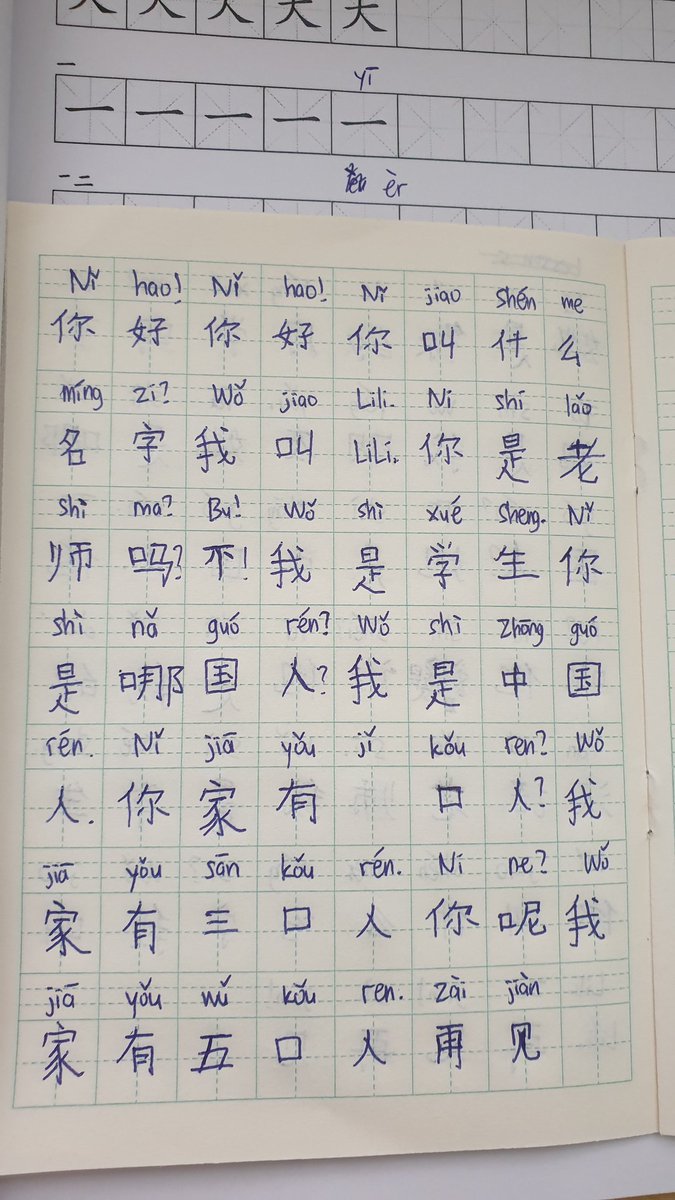 大 大 大 大 大
一 yī
一 一 一 一 一
一 二 èr
Nǐ hao! Nǐ hao! Nǐ jiao shén me
你 好 你 好 你 叫 什 么
míng zi? Wǒ jiao Lili. Ni shi lǎo
名 字 我 叫 LiLi. 你 是 老
shi ma? Bu! Wǒ shì xué sheng. Nǐ
师 吗? 不! 我 是 学 生 你
shì nǎ guó rén? Wǒ shì zhōng guó
是 哪 国 人? 我 是 中 国
rén. Nǐ jiā yǒu jǐ kǒu ren? Wǒ
人. 你 家 有 口 人? 我
jiā yǒu sān kǒu rén. Ni ne? Wǒ
家 有 三 口 人 你 呢 我
jiā yǒu wǔ kǒu ren. zài jiàn
家 有 五 口 人 再 见